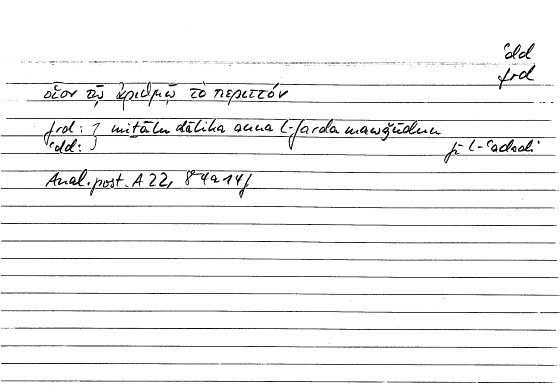 ʿdd
frd
οἷον τῷ ἀριθμῷ τὸ περιττόν
frd: } miṯālu ḏālika anna l-farda mawǧūdun
ʿdd: } fī l-ʿadadi
Anal. post. A 22, 84a14f